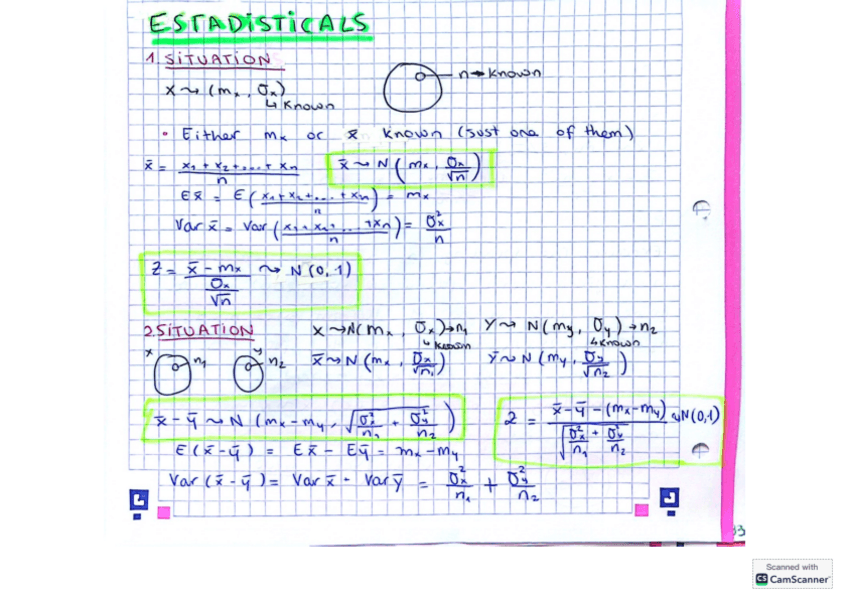 ESTADISTICALS
1. SITUATION
n → known
x ~> (mx, σx)
↳ known
• Either mx or x̄ known (sust one of them)
x̄ = (x1 + x2 + .... + xn) / n    x̄ ~> N(mx, σx/√n)
E x̄ = E((x1 + x2 + ... + xn) / n) = mx
Var x̄ = Var((x1 + x2 + ... + xn) / n) = σx²/n
Z = (x̄ - mx) / (σx/√n) ~> N(0,1)
2. SITUATION    x ~> N(mx, σx) → n1    Y ~> N(my, σy) → n2
↳ known    ↳ known
x n1    y n2    x̄ ~> N(mx, σx/√n1)    ȳ ~> N(my, σy/√n2)
x̄ - ȳ ~> N(mx - my, √(σx²/n1 + σy²/n2))    Z = (x̄ - ȳ - (mx - my)) / √(σx²/n1 + σy²/n2) ~> N(0,1)
E(x̄ - ȳ) = E x̄ - E ȳ = mx - my
Var(x̄ - ȳ) = Var x̄ - Var ȳ = σx²/n1 + σy²/n2
33
Scanned with
CS CamScanner